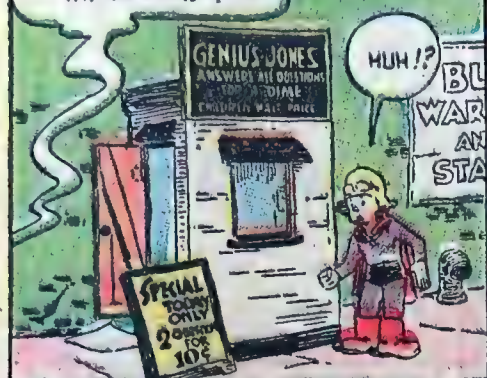 GENIUS JONES
ANSWERS ALL QUESTIONS
FOR A DIME
CHILDREN HALF PRICE
HUH!?
BU
WAR
AN
STA
SPECIAL
TODAY
ONLY
2
FOR
10¢